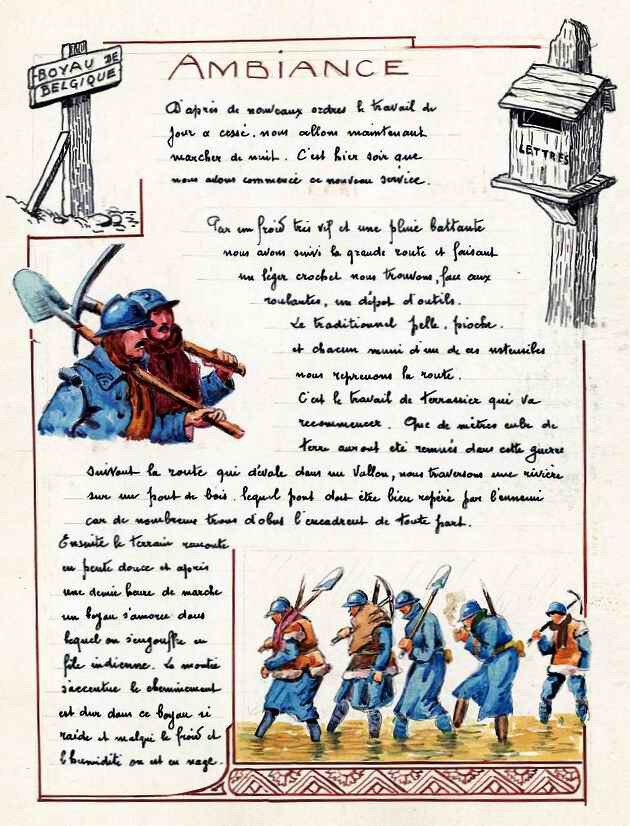 BOYAU DE
BELGIQUE
AMBIANCE
LETTRES
D'après de nouveaux ordres le travail de
jour a cessé. nous allons maintenant
marcher de nuit. C'est hier soir que
nous avons commencé ce nouveau service.
Par un froid très vif et une pluie battante
nous avons suivi la grande route et faisant
un léger crochet nous trouvons, face aux
roulantes, un dépot d'outils.
Le traditionnel pelle, pioche.
et chacun muni d'un de ces ustensibles
nous reprenons la route.
C'est le travail de terrassier qui va
recommencer. Que de mètres cube de
terre auront été remués dans cette guerre
suivant la route qui dévale dans un vallon, nous traversons une rivière
sur un pont de bois. lequel pont doit être bien repéré par l'ennemi
car de nombreux trous d'obus l'encadrent de toute part.
Ensuite le terrain remonte
en pente douce et après
une demie heure de marche
un boyau s'amorce dans
lequel on s'engouffre en
file indienne. La montée
s'accentue le cheminement
est dur dans ce boyau si
raide et malgré le froid et
l'humidité on est en nage.